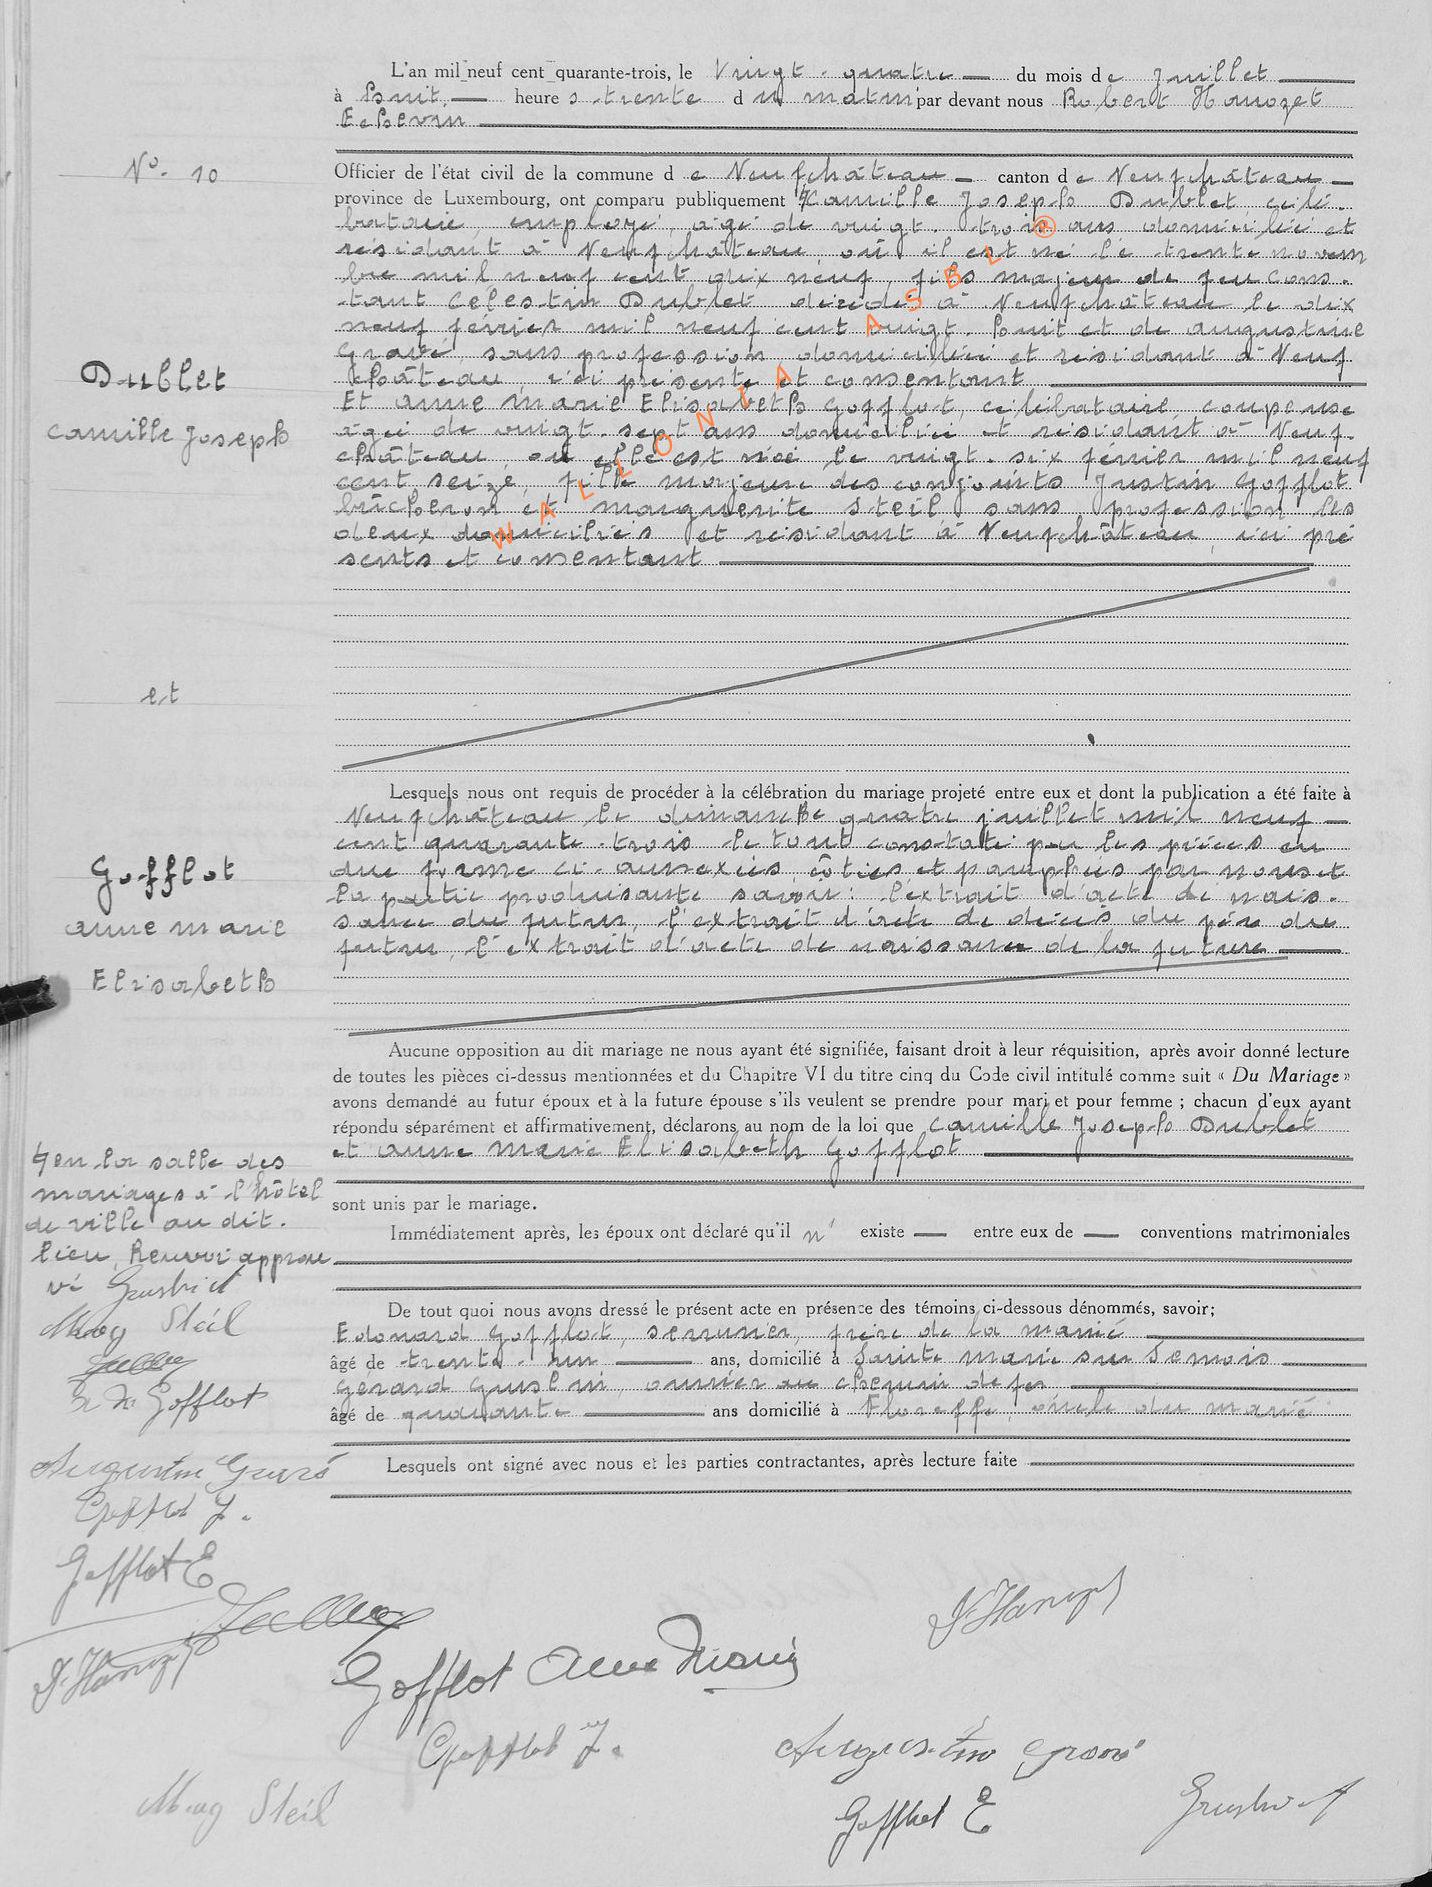 L'an mil neuf cent quarante-trois, le Vingt-quatre du mois de Juillet
à huit heures trente du matin par devant nous Robert Hanozet
Echevin
N°. 10
Officier de l'état civil de la commune de Neufchâteau canton de Neufchâteau
province de Luxembourg, ont comparu publiquement Camille Joseph Dublet céli-
bataire, employé, âgé de vingt-trois ans domicilié et
résidant à Neufchâteau, où il est né le trente novem
bre mil neuf cent dix neuf, fils majeur de feu Cons-
tant Celestin Dublet décédé à Neufchâteau le dix
neuf février mil neuf cent vingt-huit et de Augustine
Gravé, sans profession, domiciliée et résidant à Neuf-
château, ici présente et consentant
Dublet
Camille Joseph
Et Anne Marie Elisabeth Gofflot, célibataire, coupeuse
âgée de vingt-sept ans domiciliée et résidant à Neuf-
château, où elle est née le vingt-six février mil neuf
cent seize, fille majeure des conjoints Justin Gofflot
bûcheron et Marguerite Steil sans profession les
deux domiciliés et résidant à Neufchâteau, ici pré
sents et consentant
WALLONIA ASBL ®
et
Lesquels nous ont requis de procéder à la célébration du mariage projeté entre eux et dont la publication a été faite à
Neufchâteau le dimanche quatre juillet mil neuf
cent quarante-trois le tout constaté par les pièces en
due forme ci-annexées, côtées et paraphées par nous et
la partie produisante savoir: l'extrait d'acte de nais-
sance du futur, l'extrait d'acte de décès du père du
futur, l'extrait d'acte de naissance de la future
Gofflot
Anne Marie
Elisabeth
Aucune opposition au dit mariage ne nous ayant été signifiée, faisant droit à leur réquisition, après avoir donné lecture
de toutes les pièces ci-dessus mentionnées et du Chapitre VI du titre cinq du Code civil intitulé comme suit « Du Mariage »
avons demandé au futur époux et à la future épouse s'ils veulent se prendre pour mari et pour femme ; chacun d'eux ayant
répondu séparément et affirmativement, déclarons au nom de la loi que Camille Joseph Dublet
et Anne Marie Elisabeth Gofflot
sont unis par le mariage.
Immédiatement après, les époux ont déclaré qu'il n' existe entre eux de conventions matrimoniales
en la salle des
mariages à l'hôtel
de ville au dit-
lieu, Renvoi approu
vé
Marg Steil
Gofflot
Augustine Gravé
Gofflot J.
Gofflot E
De tout quoi nous avons dressé le présent acte en présence des témoins ci-dessous dénommés, savoir;
Edouard Gofflot, serrurier, frère de la mariée
âgé de trente-un ans, domicilié à Sainte Marie sur Semois
Gérard Guslin, ouvrier au chemin de fer
âgé de quarante ans domicilié à Floreffe, oncle du marié
Lesquels ont signé avec nous et les parties contractantes, après lecture faite
Gofflot Anne Marie
Gofflot J.
Augustine Gravé
Marg Steil
Gofflot E